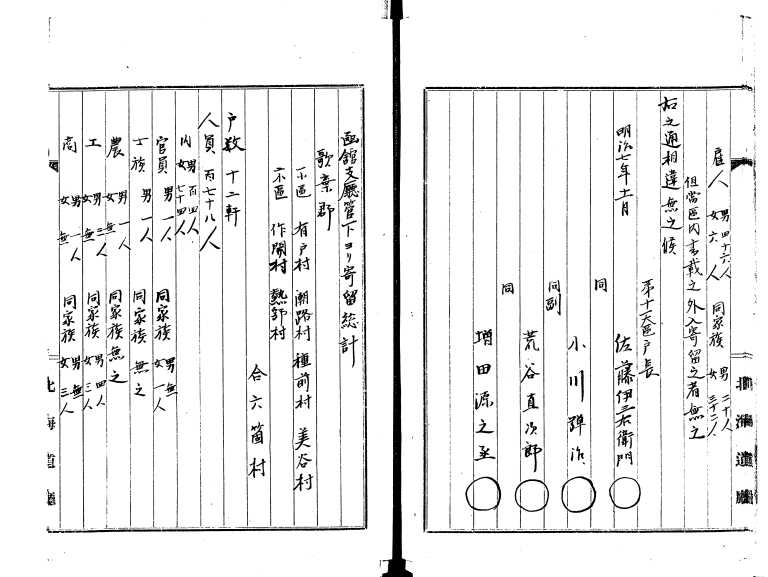 雇人 男四十六人 女六人 同家族 男二十人 女三十二人
但當區内書載之外入寄留之者無之
右之通相違無之候
明治七年十一月
第十六大區戸長
佐藤伊三右衛門
同
小川弾治
同副
荒谷直次郎
同
増田源之丞
北海道廳
函館支廳管下ヨリ寄留総計
歌棄郡
一小區 有戸村 潮路村 種前村 美谷村
二小區 作開村 熱郛村
合六箇村
戸数 十二軒
人員 百七十八人
内 男百四人 女七十四人
官員 男一人 同家族 男無 女一人
士族 男一人 同家族 無之
農 男一人 女無 同家族無之
工 男三人 女無 同家族 男四人 女三人
商 男一人 女無 同家族 男無 女三人
北海道廳